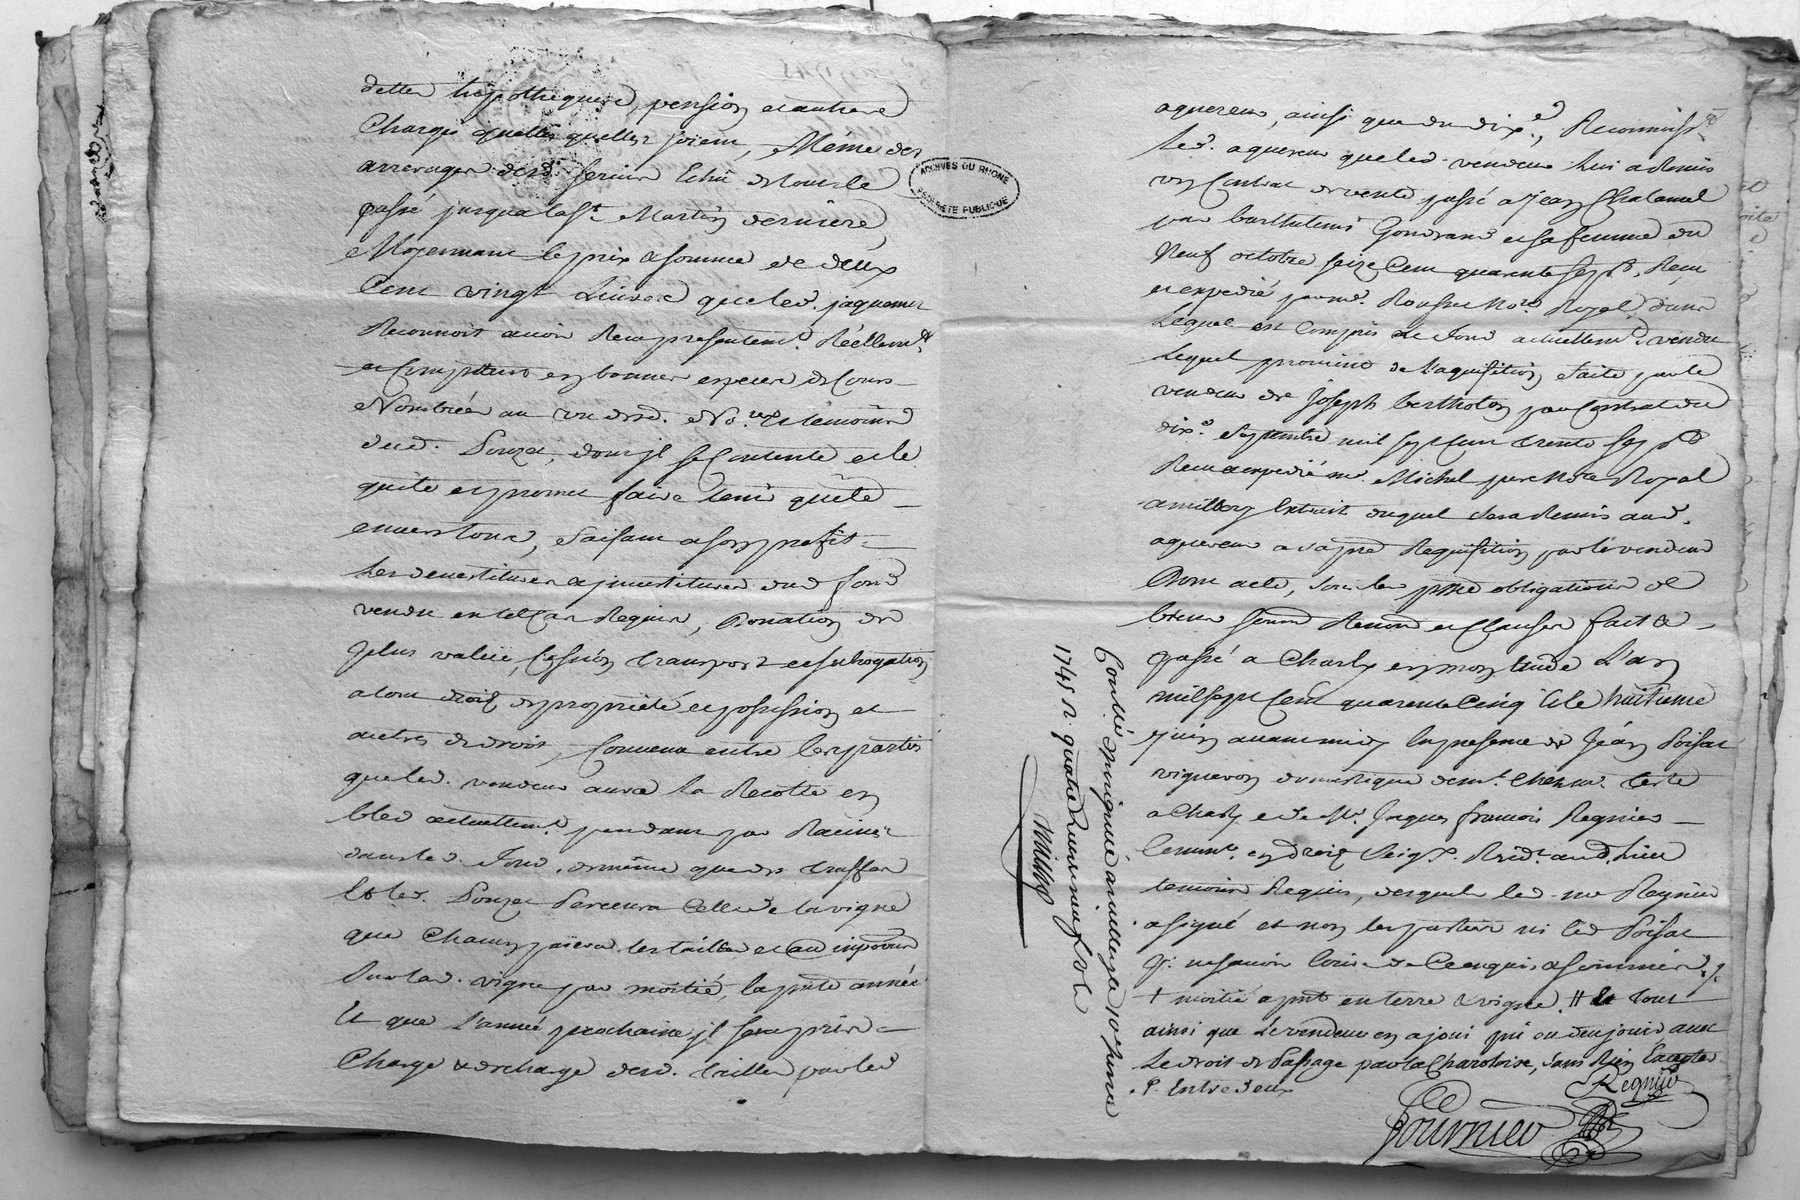 dettes hipotheques, pension et autres
Charges quelles quelles soient, Même des
arrerages desd. servis Echû de tout le
passé jusqua la st. Martin derniere,
Moyennant le prix & somme de deux
Cent vingt Livres que led. jaquemet
Reconnoit avoir Reçu presentemt. Réellemt.
et Comptant en bonnes especes de Cours
Nombrée au vu desd. No.re & temoins
dud. Souzet, dont jl se Contente et le
quite et promet faire tenir quitte
envers tous, faisant a son profit
les devestitures & jnvestitures dud fond
vendu en tel Cas Requis, Donation de
plus value, Cession transport et subrogation
a tous droits de propriété et possession et
autres de droit, Convenu entre les parties
que led. vendeur aura la Recolte en
bled actuellemt. pendant par Racines
dans led. fond, de même que des truffes
Et led. Souzet percevra Celle de la vigne
que Chacun paiera les tailles et au jmposition
sur lad. vigne par moitié, la pnte année
Et que L'année prochaine jl sera pris
Charge & decharge desd. tailles par led
aquereur, ainsi que du dixe., Reconnoiss.
Led. aquereur que led. vendeur lui a Remis
un Contrat de vente passé a Jean Chalamel
par barthelemi Gondrand et sa femme du
Neuf octobre seize Cent quarente sept, Reçu
et expedié par me. Rousset No.re Royal, dans
Lequel est Compris Le fond actuellemt. vendu
Lequel provient de l'aquisition faite par le
vendeur de Joseph bertholon par Contrat du
dixe. septembre mil sept Cent trente sept
Reçu & expedié me. Michel pere No.re Royal
a millery Extrait duquel sera Remis aud.
aquereur a sa pre Requisition par le vendeur
Dont acte, sous les ptes obligations de
biens soumis Renon et Clauses fait &
passé a Charly en mon Etude L'an
mil sept Cent quarente Cinq & le huitieme
juin avant midy En presence de Jean Poisat
vigneron domestique de mr. Chenu.
a Charly & de Sr. Jacques francois Regnier
en droit Resid. aud. lieu
temoins Requis, desquels le sr Regnier
a signé et non les parties ni led Poisat
p. ne savoir Ecrire de Ce enquis & sommés
+ moitié a pnt en terre & vigne. # & tout
ainsi que Le vendeur en a joui pu ou deu jouir, avec
Le droit de Passage par la Charetoire, sans Rien Excepter
. P. Entre deux
Regnier
Fournier
Controllé & insinué a millery le 10e juin
1745 R. quatre Livres neuf sols
Michel
ARCHIVES DU RHONE
PROPRIÉTÉ PUBLIQUE